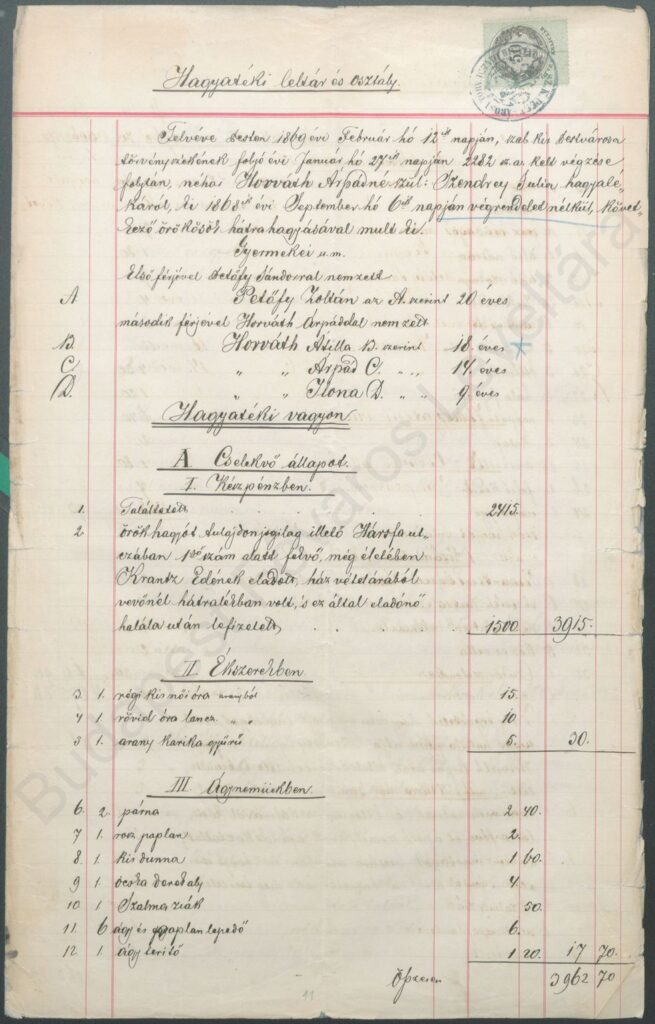 Hagyatéki leltár és osztály.
Felvéve Pesten 1869 évi Február hó 12én napján, szab. kir. Pestvárosa
törvényszékének folyó évi Január hó 27én napján 2282 sz. a. kelt végzése
folytán, néhai Horváth Árpádné szül: Szendrey Julia hagyaté-
káról, ki 1868ik évi September hó 6án napján végrendelet nélkül, követ-
kező örökösök hátrahagyásával mult ki.
Gyermekei u.m.
Első férjével Petőfy Sándorral nemzett
A Petőfy Zoltán az A. szerint 20 éves
második férjével Horváth Árpáddal nemzett
B. Horváth Atilla B. szerint 18. éves
C. " " Árpád C. " " 17. éves
D. " " Ilona D. " " 9. éves
Hagyatéki vagyon.
A Cselekvő állapot.
I. Készpénzben.
1. Találtatott 2415.
2. örökhagyót tulajdonjogilag illető Hársfa ut-
czában 1ső szám alatt fekvő, még életében
Krantz Edének eladott, ház vételárából
vevőnél hátralékban volt, 's ez által eladónő
halála után lefizetett 1500. 3915.
II. Ékszerekben
3 1. régi kis női óra aranyból 15.
4 1. rövid óra láncz " " 10
5 1. arany karika gyűrű 5. 30.
III. Ágyneműekben.
6. 2. párna 2 40.
7 1. rosz paplan 2.
8. 1. kis dunna 1 60.
9 1. ócska derekaly 4.
10 1 Szalma zsák 50.
11. 6 ágy és paplan lepedő 6.
12. 1 ágy terítő 1 20. 17 70.
Öszesen 3962 70
11
Budapest Főváros Levéltára